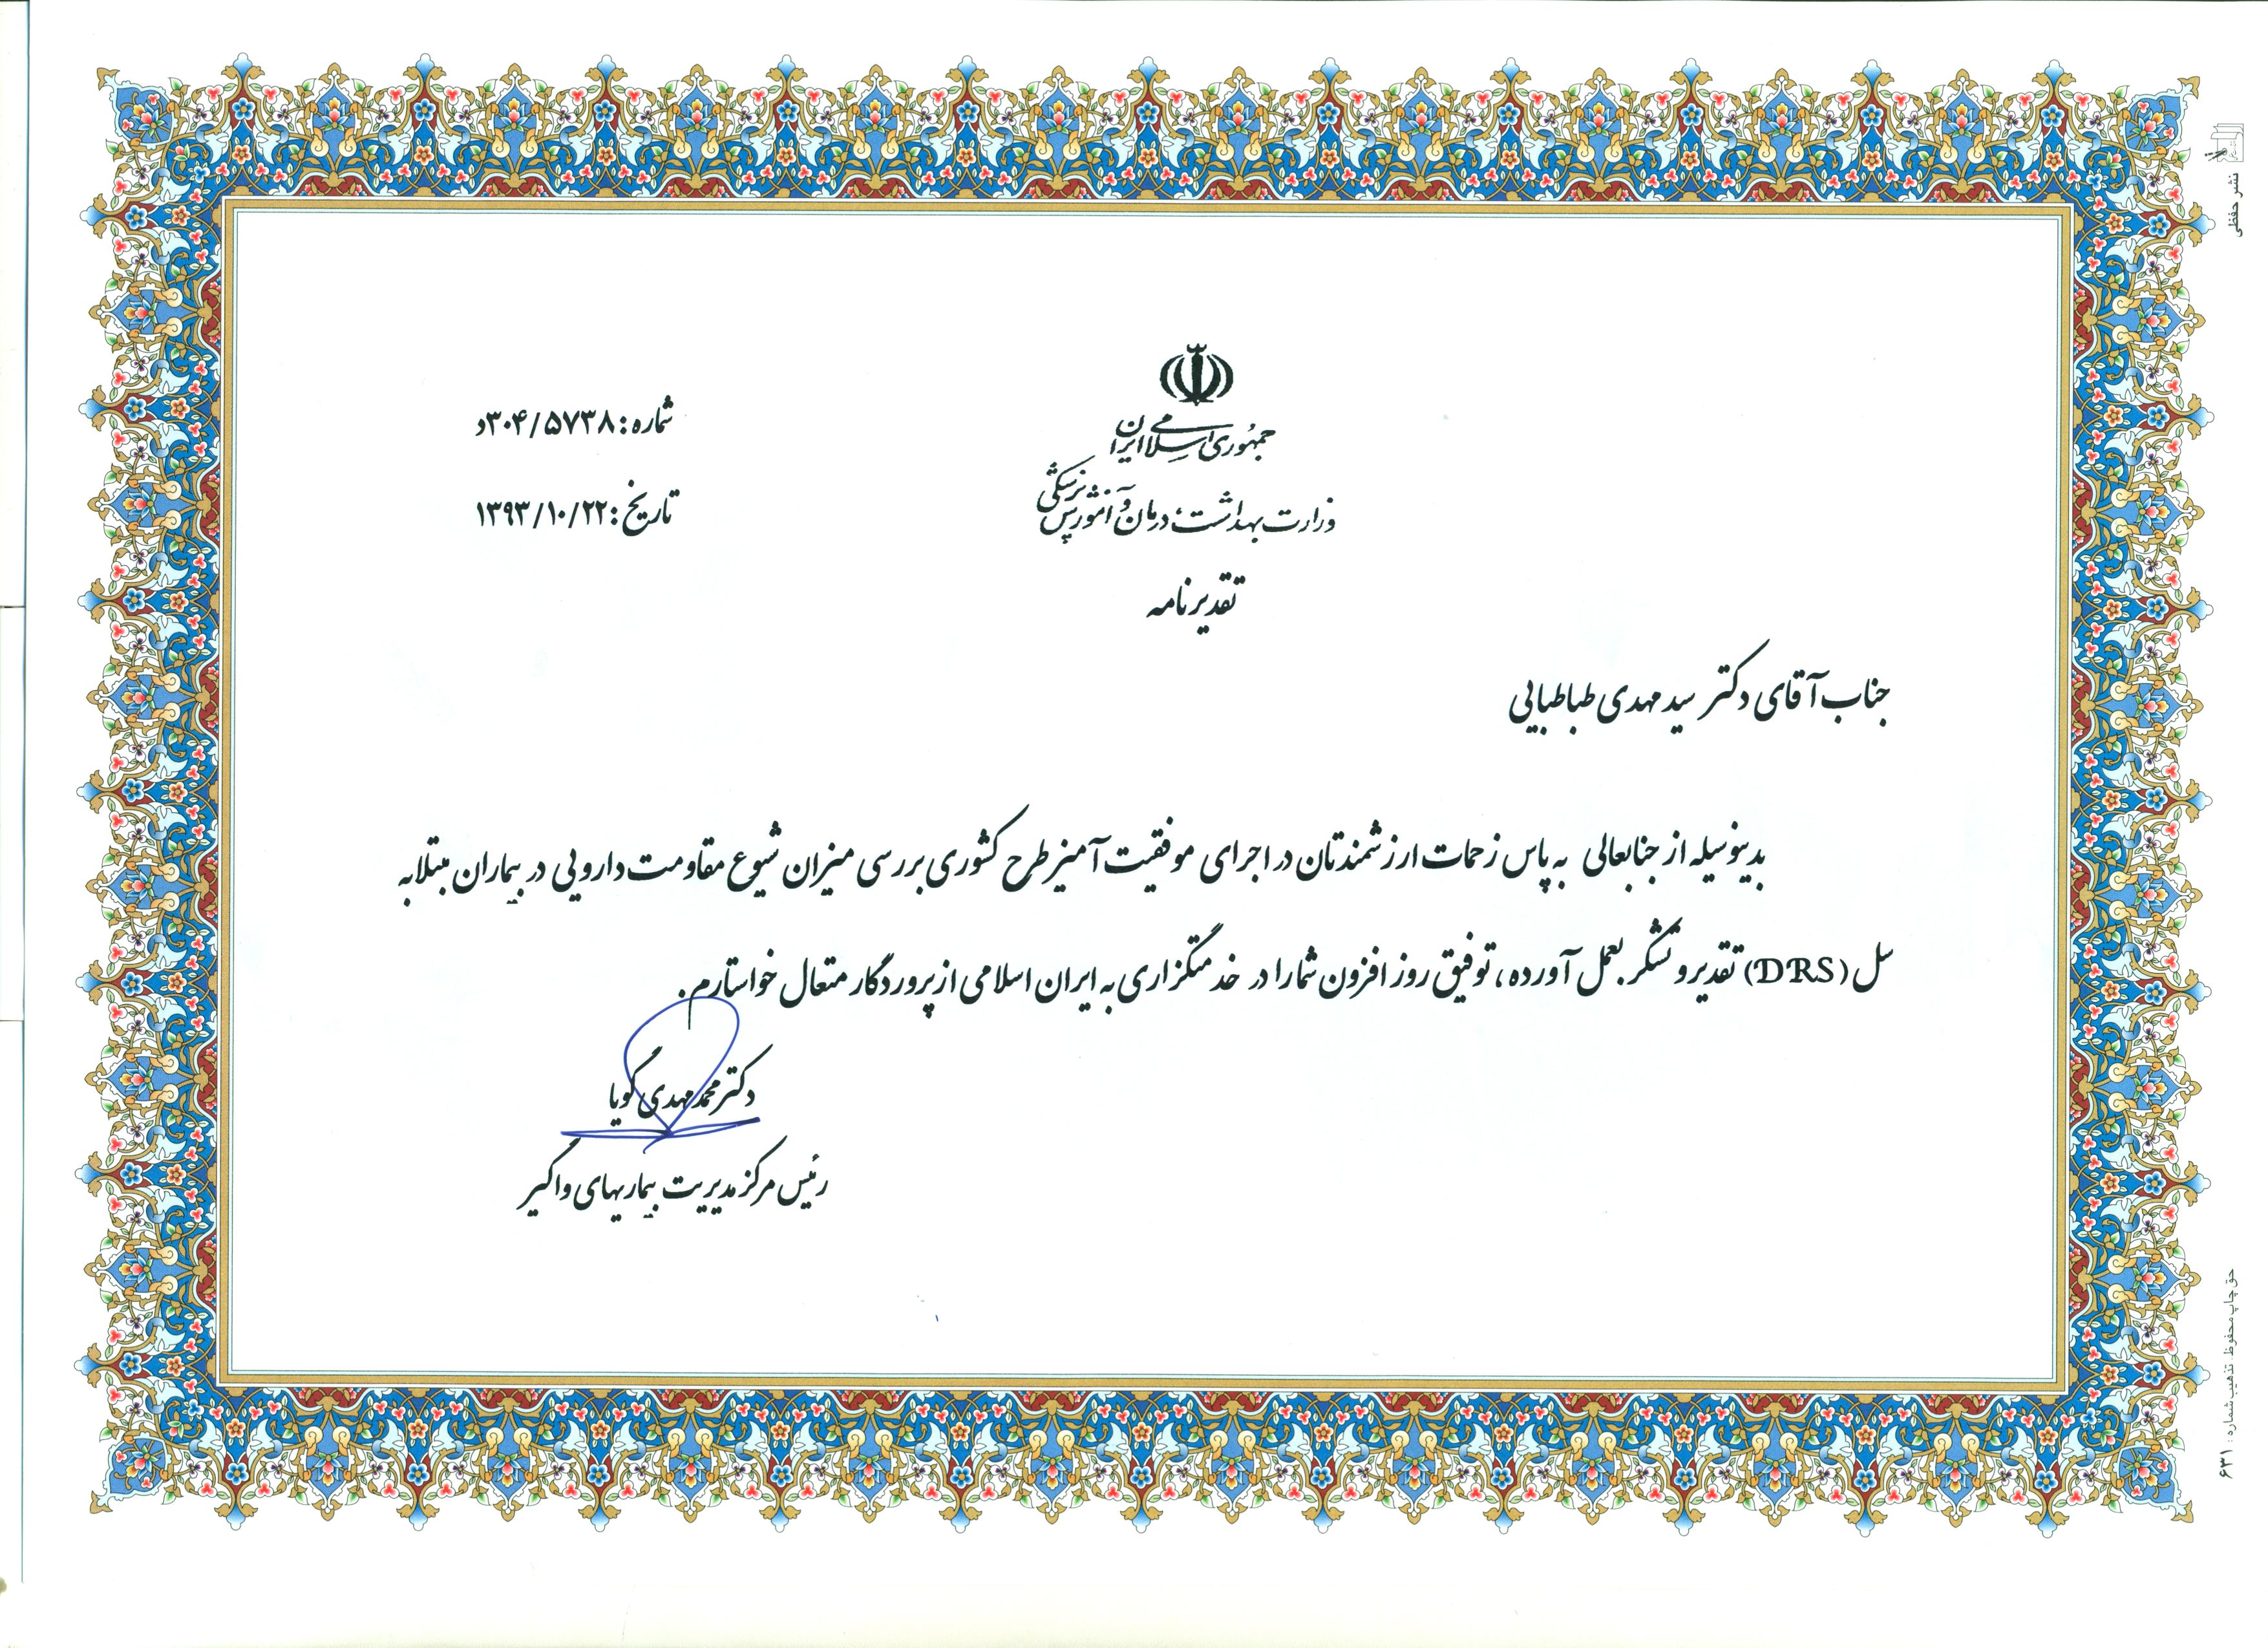 جمهوری اسلامی ایران
وزارت بهداشت، درمان و آموزش پزشکی
شماره: ۳۰۴/۵۷۳۸د
تاریخ: ۱۳۹۳/۱۰/۲۲
تقدیرنامه
جناب آقای دکتر سید مهدی طباطبایی
بدینوسیله از جنابعالی به پاس زحمات ارزشمندتان در اجرای موفقیت آمیز طرح کشوری بررسی میزان شیوع مقاومت دارویی در بیماران مبتلا به
سل (DRS) تقدیر و تشکر بعمل آورده، توفیق روز افزون شما را در خدمتگزاری به ایران اسلامی از پروردگار متعال خواستارم.
دکتر محمد مهدی گویا
رئیس مرکز مدیریت بیماریهای واگیر
نشر حفظی
حق چاپ محفوظ تذهیب شماره: ۶۳۱